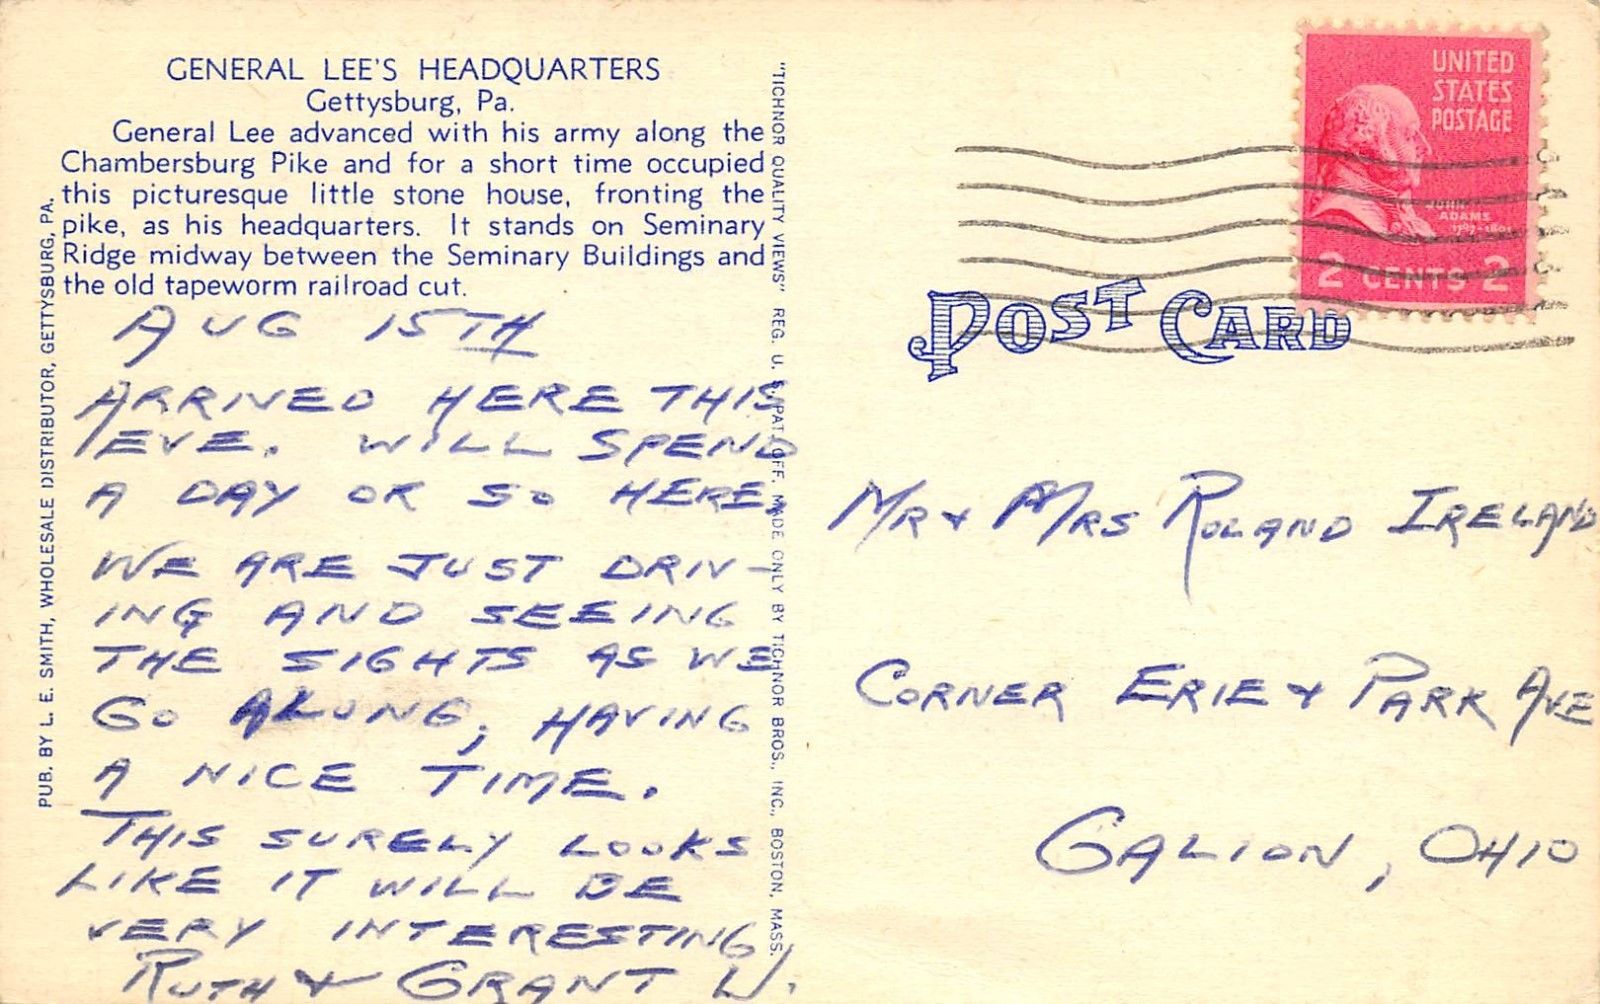 GENERAL LEE'S HEADQUARTERS
Gettysburg, Pa.
General Lee advanced with his army along the
Chambersburg Pike and for a short time occupied
this picturesque little stone house, fronting the
pike, as his headquarters. It stands on Seminary
Ridge midway between the Seminary Buildings and
the old tapeworm railroad cut.
AUG 15TH
ARRIVED HERE THIS
EVE. WILL SPEND
A DAY OR SO HERE.
WE ARE JUST DRIV-
ING AND SEEING
THE SIGHTS AS WE
GO ALONG, HAVING
A NICE TIME.
THIS SURELY LOOKS
LIKE IT WILL BE
VERY INTERESTING
RUTH & GRANT W.
PUB. BY L. E. SMITH, WHOLESALE DISTRIBUTOR, GETTYSBURG, PA.
"TICHNOR QUALITY VIEWS" REG. U. S. PAT. OFF. MADE ONLY BY TICHNOR BROS., INC., BOSTON, MASS.
UNITED
STATES
POSTAGE
JOHN
ADAMS
2 CENTS 2
POST CARD
MR & MRS ROLAND IRELAND
CORNER ERIE & PARK AVE
GALION, OHIO